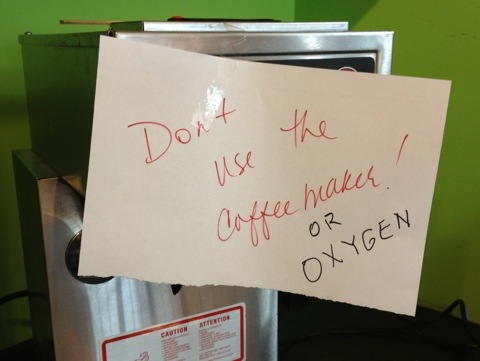 Don't
use the
Coffeemaker!
OR
OXYGEN
CAUTION ATTENTION